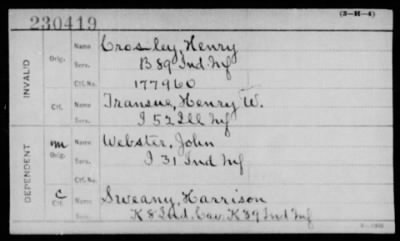 230419
(3—H—4)
INVALID
Orig. Name Crosley, Henry
Serv. B 89 Ind Inf
Ctf. No. 177960
Ctf. Name Transue, Henry W.
Serv. I 52 Ill Inf
DEPENDENT
m Orig. Name Webster, John
Serv. I 31 Ind Inf
Ctf. No.
C Ctf. Name Sweany, Harrison
Serv. K 8 Ind. Cav. K 39 Ind Inf